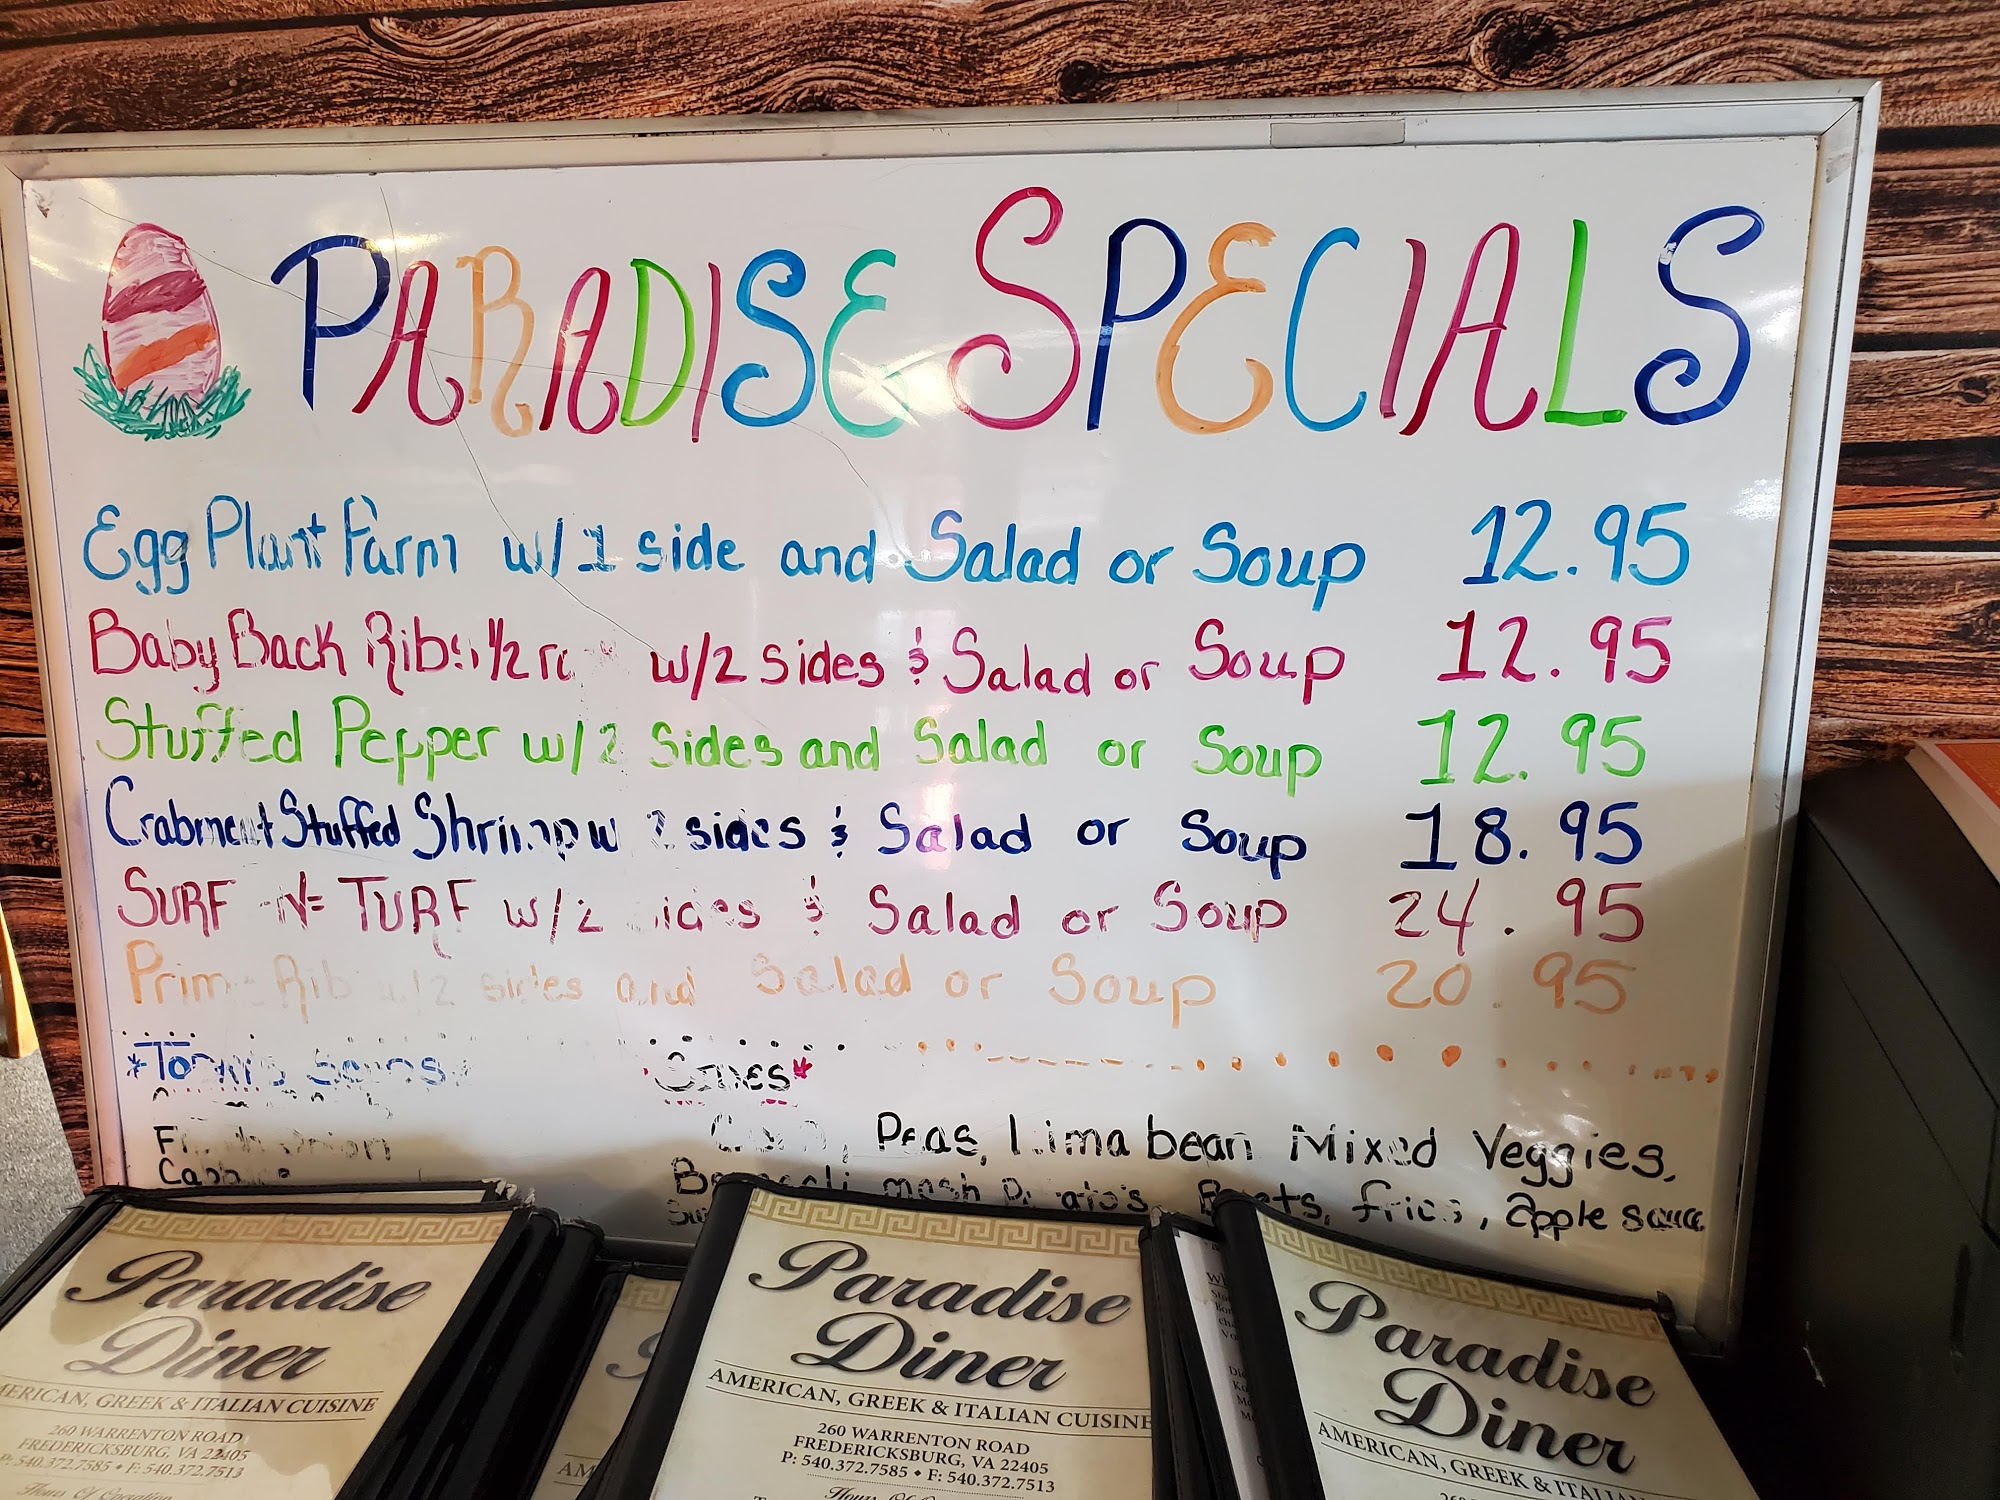 PARADISE SPECIALS
Egg Plant Parm w/1 side and Salad or Soup 12.95
Baby Back Ribs 1/2 w/2 sides & Salad or Soup 12.95
Stuffed Pepper w/2 Sides and Salad or Soup 12.95
Crabmeat Stuffed Shrimp w 2 sides & Salad or Soup 18.95
SURF -N- TURF w/2 sides & Salad or Soup 24.95
Prime Rib w/2 sides and Salad or Soup 20.95
Sides*
Peas, Lima bean Mixed Veggies,
Broccoli, mash Potato's, Beets, fries, apple sauce
Paradise
Diner
AMERICAN, GREEK & ITALIAN CUISINE
260 WARRENTON ROAD
FREDERICKSBURG, VA 22405
P: 540.372.7585 • F: 540.372.7513
Hours Of Operation
Paradise
Diner
AMERICAN, GREEK & ITALIAN CUISINE
260 WARRENTON ROAD
FREDERICKSBURG, VA 22405
P: 540.372.7585 • F: 540.372.7513
Hours Of
Paradise
Diner
AMERICAN, GREEK & ITALIAN